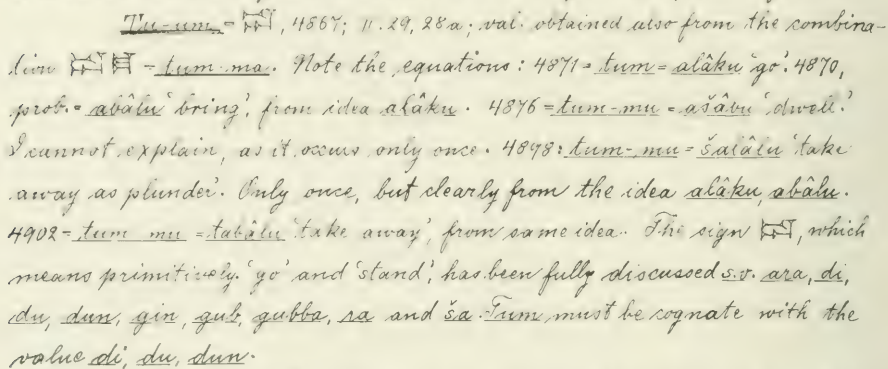 Tu-um = 𒁺, 4867; II. 29, 28a; val. obtained also from the combina-
tion 𒁺𒈠 = tum-ma. Note the equations: 4871 = tum = alâku 'go'. 4870,
prob. = abâlu 'bring', from idea alâku. 4876 = tum-mu = ašâbu 'dwell'.
I cannot explain, as it occurs only once. 4898: tum-mu = šalâlu 'take
away as plunder'. Only once, but clearly from the idea alâku, abâlu.
4902 = tum mu = tabâlu 'take away', from same idea. The sign 𒁺, which
means primitively 'go' and 'stand', has been fully discussed s.v. ara, di,
du, dun, gin, gub, gubba, ra and ša. Tum must be cognate with the
value di, du, dun.